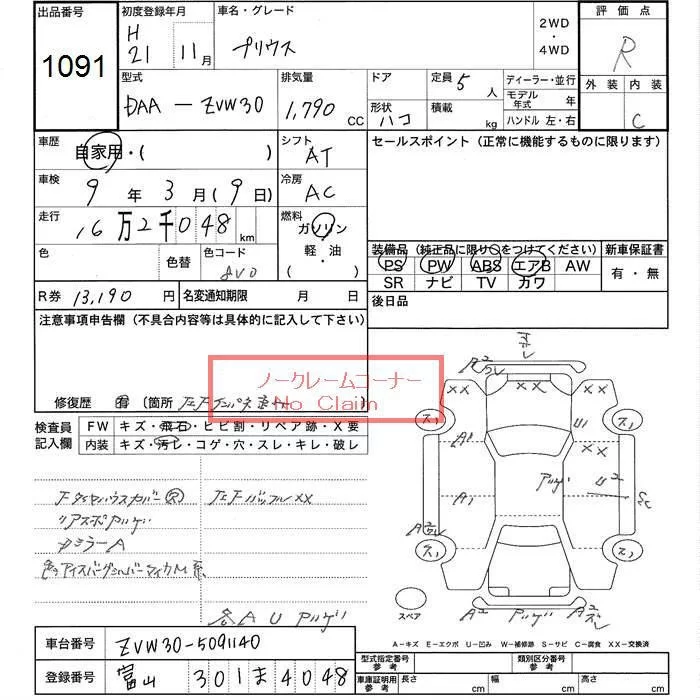 出品番号
1091
初度登録年月
H 21 11月
車名・グレード
プリウス
2WD
・
4WD
評価点
R
外装 内装
C
型式
DAA-ZVW30
排気量
1,790 CC
ドア
形状
ハコ
定員 5人
積載 kg
ディーラー・並行
モデル年式 年
ハンドル 左・右
車歴
自家用・( )
シフト
AT
車検
9年 3月(9日)
冷房
AC
走行
16万2千048km
燃料
ガソリン
軽・油
・( )
色
色替
色コード
8V0
R券 13,190円
名変通知期限 月 日
セールスポイント(正常に機能するものに限ります)
装備品(純正品に限り○をつけてください)
PS PW ABS エアB AW
SR ナビ TV カワ
新車保証書
有・無
後日品
注意事項申告欄(不具合内容等は具体的に記入して下さい)
ノークレームコーナー
No Claim
修復歴 有 (箇所
検査員
記入欄
FW キズ・飛石・ヒビ割・リペア跡・X要
内装 キズ・汚レ・コゲ・穴・スレ・キレ・破レ
左FバッフルXX
リアスポアルゲ
ミラーA
各AUアルゲ
XX XX XX
XX
A1
A1
U1
U2
アルゲ
スペア
A2 アルゲ
A-キズ E-エクボ U-凹み W-補修跡 S-サビ C-腐食 XX-交換済
車台番号 ZVW30-5091140
登録番号 富山 301ま4048
型式指定番号
参考
類別区分番号
参考
車庫証明用
参考
長さ cm 幅 cm 高さ cm